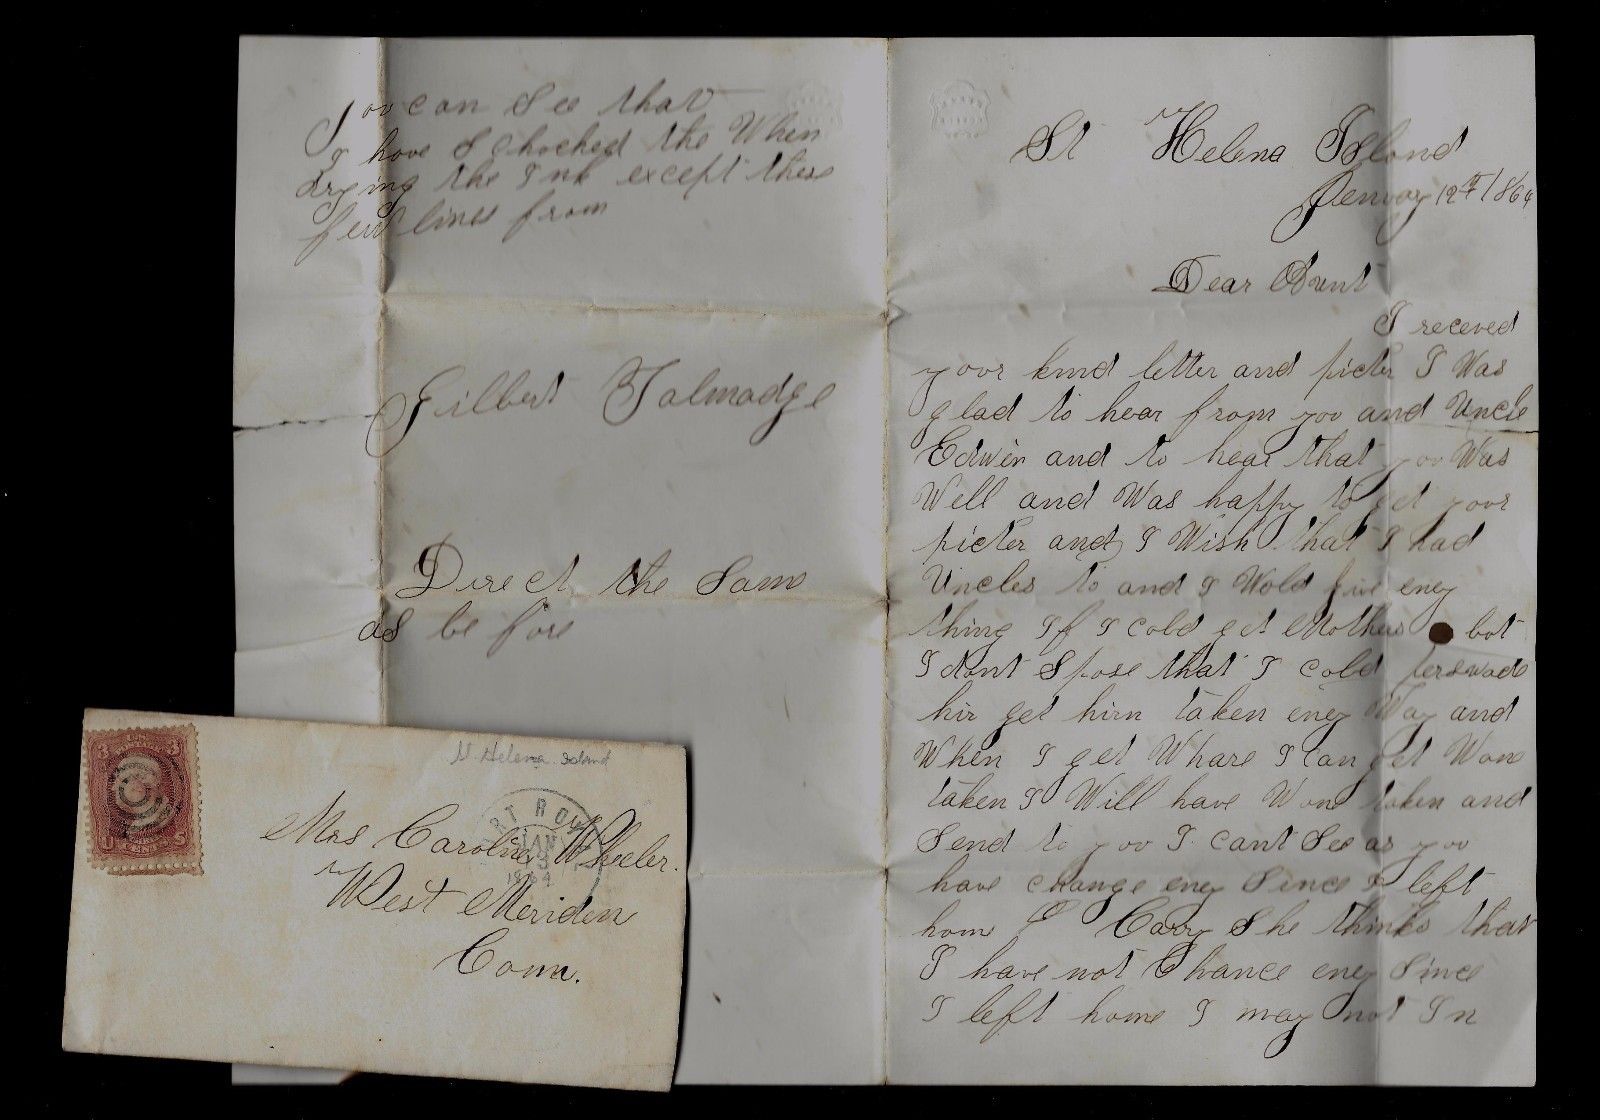 St Helena Island
Jenuary 12th 1864
Dear Aunt
I receved
your kind letter and picter I Was
glad to hear from yov and Uncle
Edwin and to hear that yov Was
Well and Was happy to get yovr
picter and I Wish that I had
Uncles to and I Wold give eney
thing If I cold get Mothers bot
I dont Spose that I cold perswade
hir get hirn taken eney Way and
When I get Whare I Can get Wone
taken I Will have Wone taken and
Send to yov I cant See as yov
have change eney Since I left
home Carry She thinks that
I have not Chance eney Since
I left home I may not In
Yov can See that
I have the When
drying the Ink except these
few lines from
Gilbert Talmadge
Direct the Same
as be fore
St Helena Island
PORT ROYAL
JAN
1864
Mrs Caroline Wheeler.
West Meriden
Conn.
3 3
CENTS